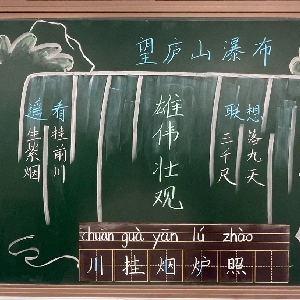 望庐山瀑布
遥看
生紫烟
挂前川
雄伟壮观
联想
三千尺
落九天
chuān guà yān lú zhào
川挂烟炉照